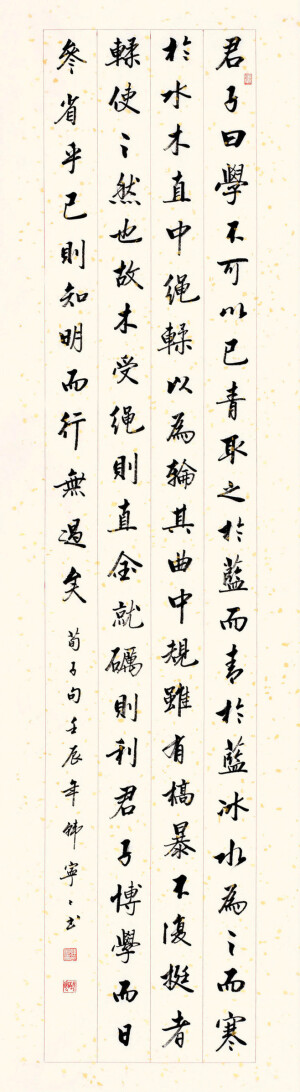 君子曰學不可以已青取之於藍而青於藍冰水為之而寒
於水木直中繩輮以為輪其曲中規雖有槁暴不復挺者
輮使之然也故木受繩則直金就礪則利君子博學而日
參省乎己則知明而行無過矣 荀子句壬辰年韩寧〻书